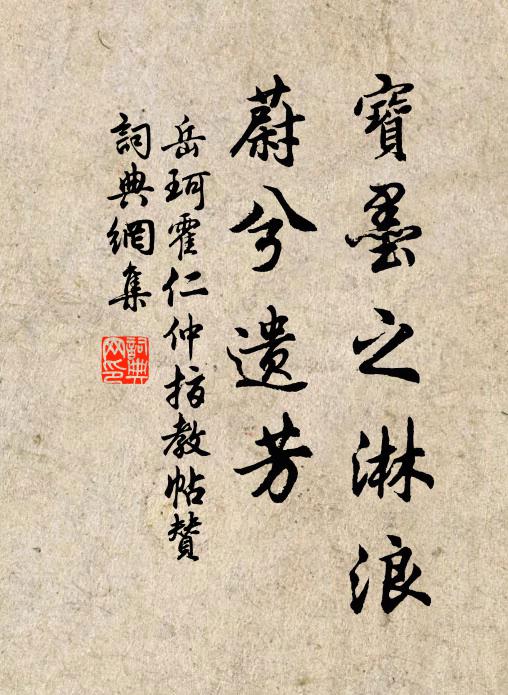 寶墨之淋浪
蔚兮遺芳
岳珂霍仁仲指教帖贊
詞典網集
詞典網印